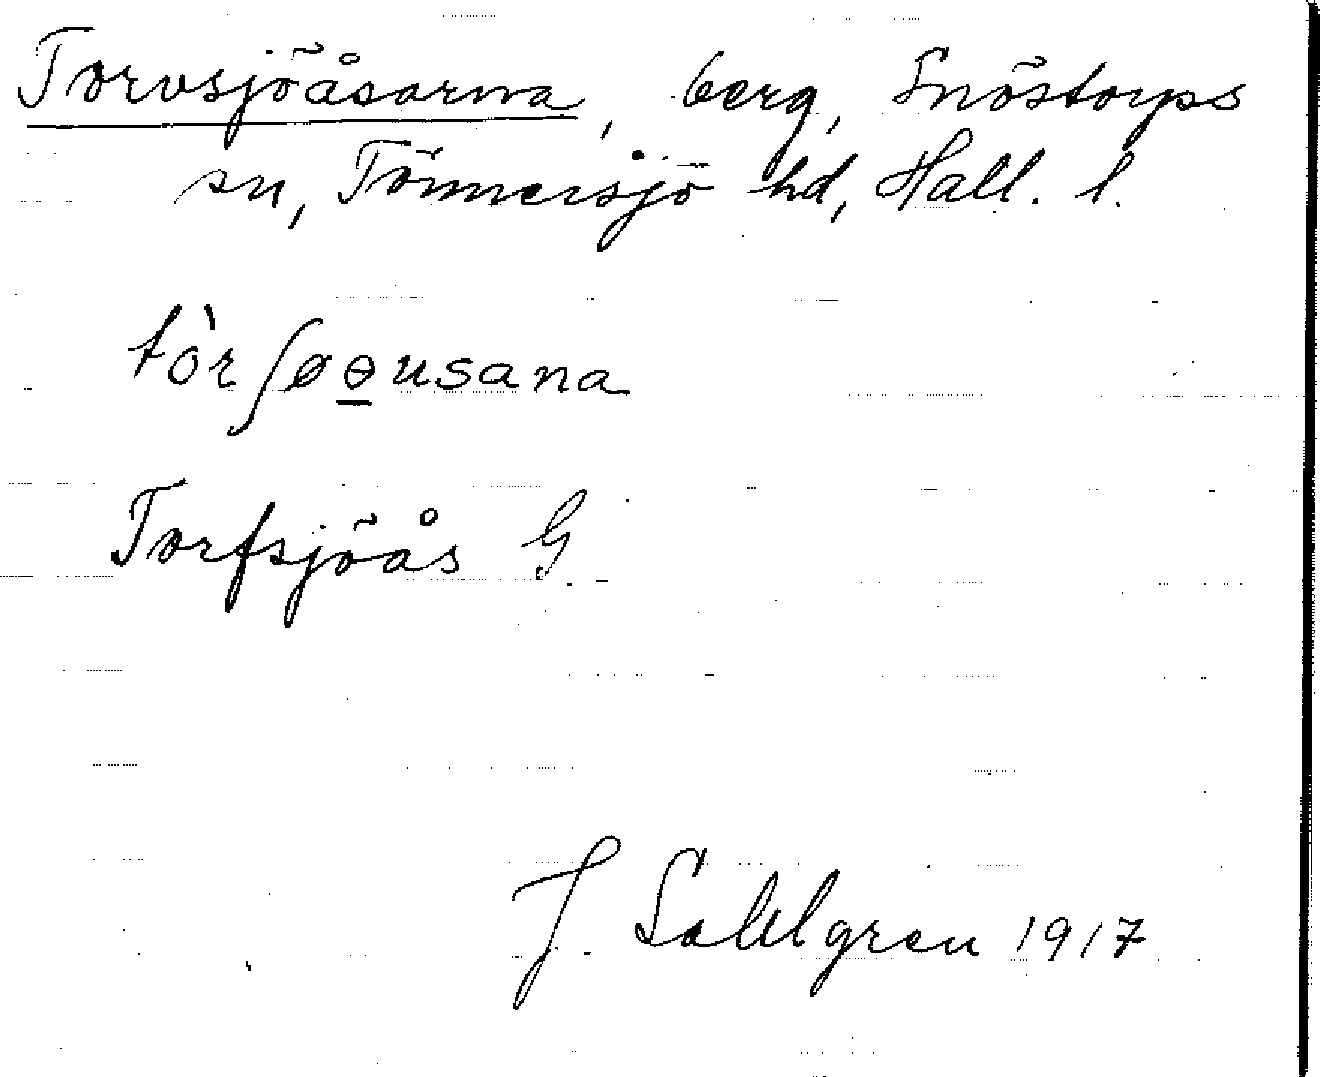 Torvsjöåsarna, berg, Snöstorps
sn, Tönnersjö hd, Hall. l.
tòrʃøɵusana
Torfsjöås G
J. Sahlgren 1917